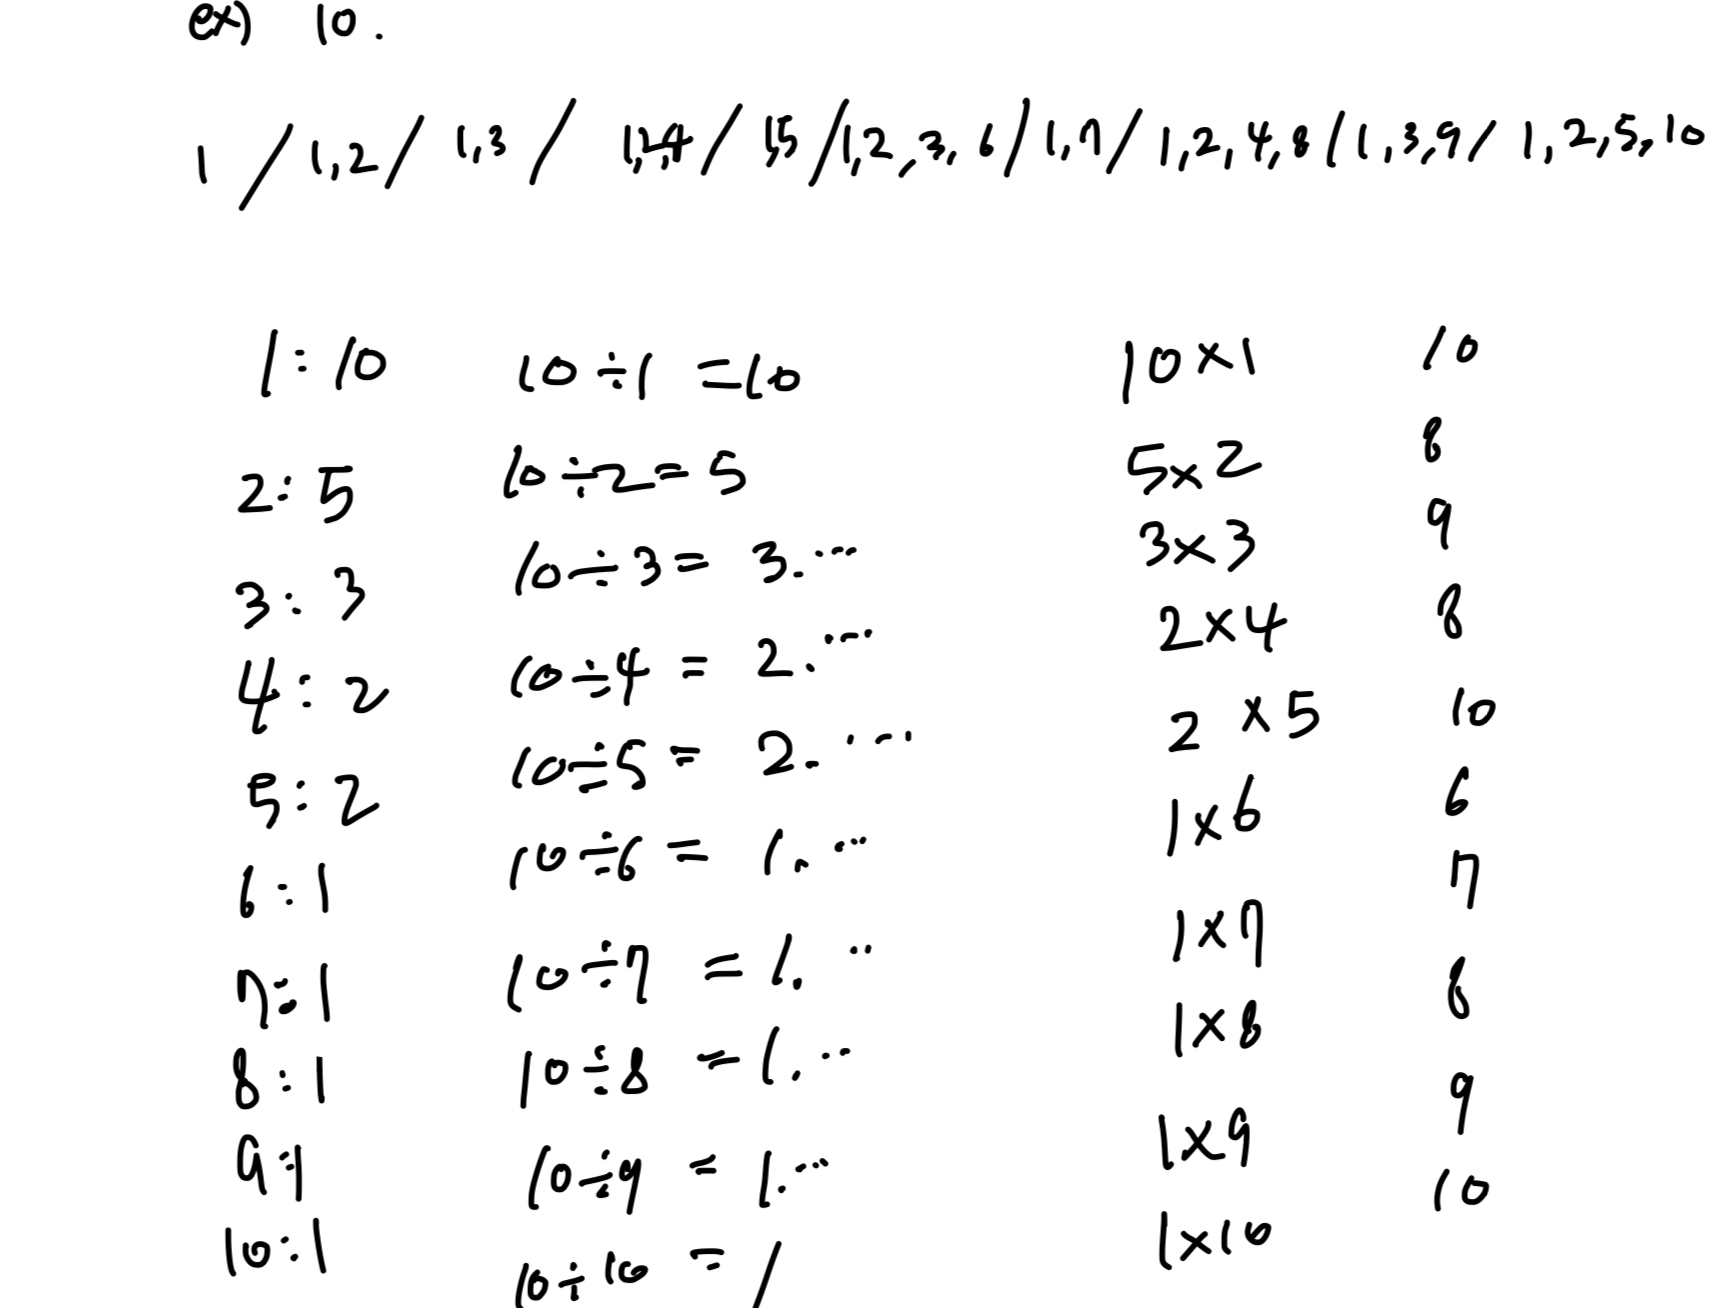 ex) 10.
1 / 1,2 / 1,3 / 1,2,4 / 1,5 / 1,2,3,6 / 1,7 / 1,2,4,8 / 1,3,9 / 1,2,5,10
1:10 10÷1 =10 10×1 10
2:5 10÷2=5 5×2 8
3:3 10÷3= 3.... 3×3 9
4:2 10÷4 = 2.... 2×4 8
5:2 10÷5 = 2.... 2×5 10
6:1 10÷6 = 1.... 1×6 6
7:1 10÷7 = 1... 1×7 7
8:1 10÷8 =1.... 1×8 8
9:1 10÷9 = 1.... 1×9 9
10:1 10÷10 = 1 1×10 10